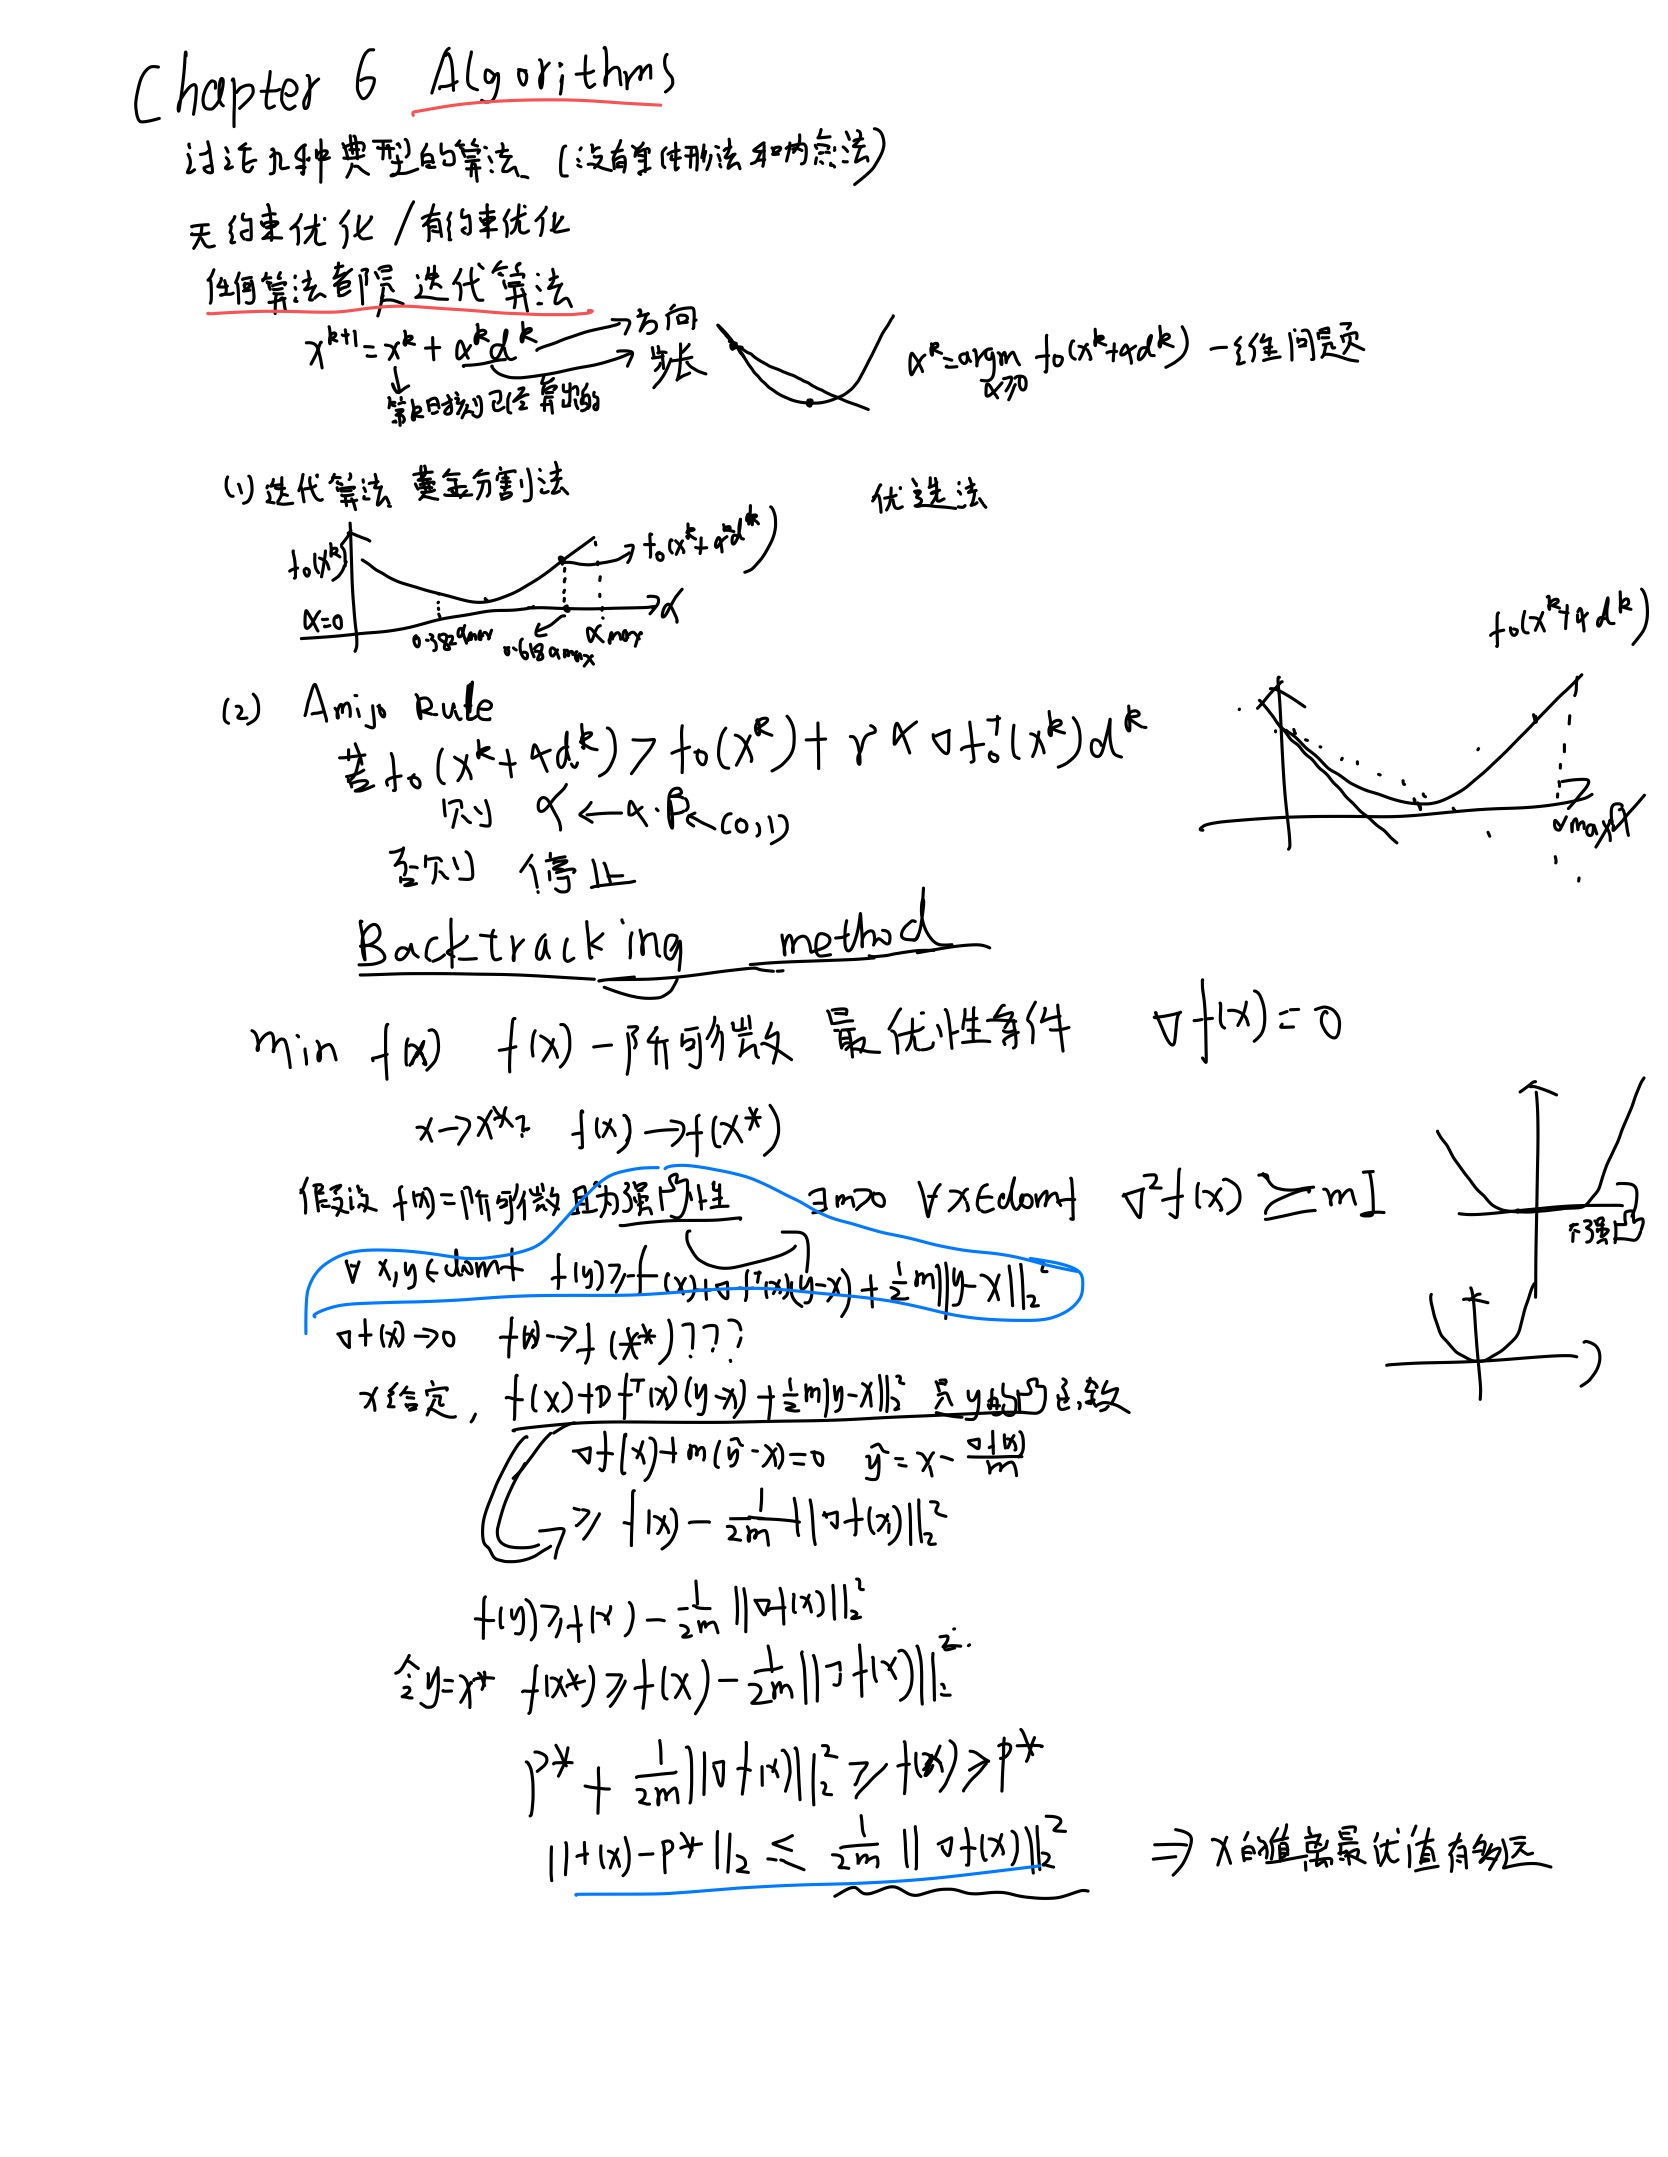 Chapter 6 Algorithms
讨论九种典型的算法 (没有单纯形法和内点法)
无约束优化 / 有约束优化
任何算法都是迭代算法
x^{k+1} = x^k + α^k d^k → 方向
→ 步长
第k时刻已经算出的
α^k = argmin_{α≥0} f₀(x^k+αd^k) 一维问题
(1) 迭代算法 黄金分割法
优选法
f₀(x^k)
f₀(x^k+α^k d^k)
α=0
0.382αmax
0.618αmax
αmax
α
f₀(x^k+αd^k)
(2) Amijo Rule
若 f₀(x^k+αd^k) > f₀(x^k) + γα∇f₀ᵀ(x^k)d^k
则 α ← α·β ← (0,1)
αmax
否则 停止
Backtracking method
min f(x) f(x) 一阶可微 最优性条件 ∇f(x)=0
x→x*? f(x)→f(x*)
假设 f(x)二阶可微且为强凸性 ∃m>0 ∀x∈domf ∇²f(x) ⪰ mI
不强凸
∀x,y∈domf f(y)≥f(x)+∇fᵀ(x)(y-x)+½m||y-x||₂²
∇f(x)→0 f(x)→f(x*)???
x给定, f(x)+∇fᵀ(x)(y-x)+½m||y-x||₂² 是y的凸函数
∇f(x)+m(ỹ-x)=0 ỹ=x-∇f(x)/m
≥ f(x) - 1/2m ||∇f(x)||₂²
f(y)≥f(x) - 1/2m ||∇f(x)||₂²
令y=x* f(x*)≥f(x) - 1/2m ||∇f(x)||₂²
p* + 1/2m ||∇f(x)||₂² ≥ f(x) ≥ p*
||f(x)-p*||₂ ≤ 1/2m ||∇f(x)||₂² ⇒ x的值离最优值有多远